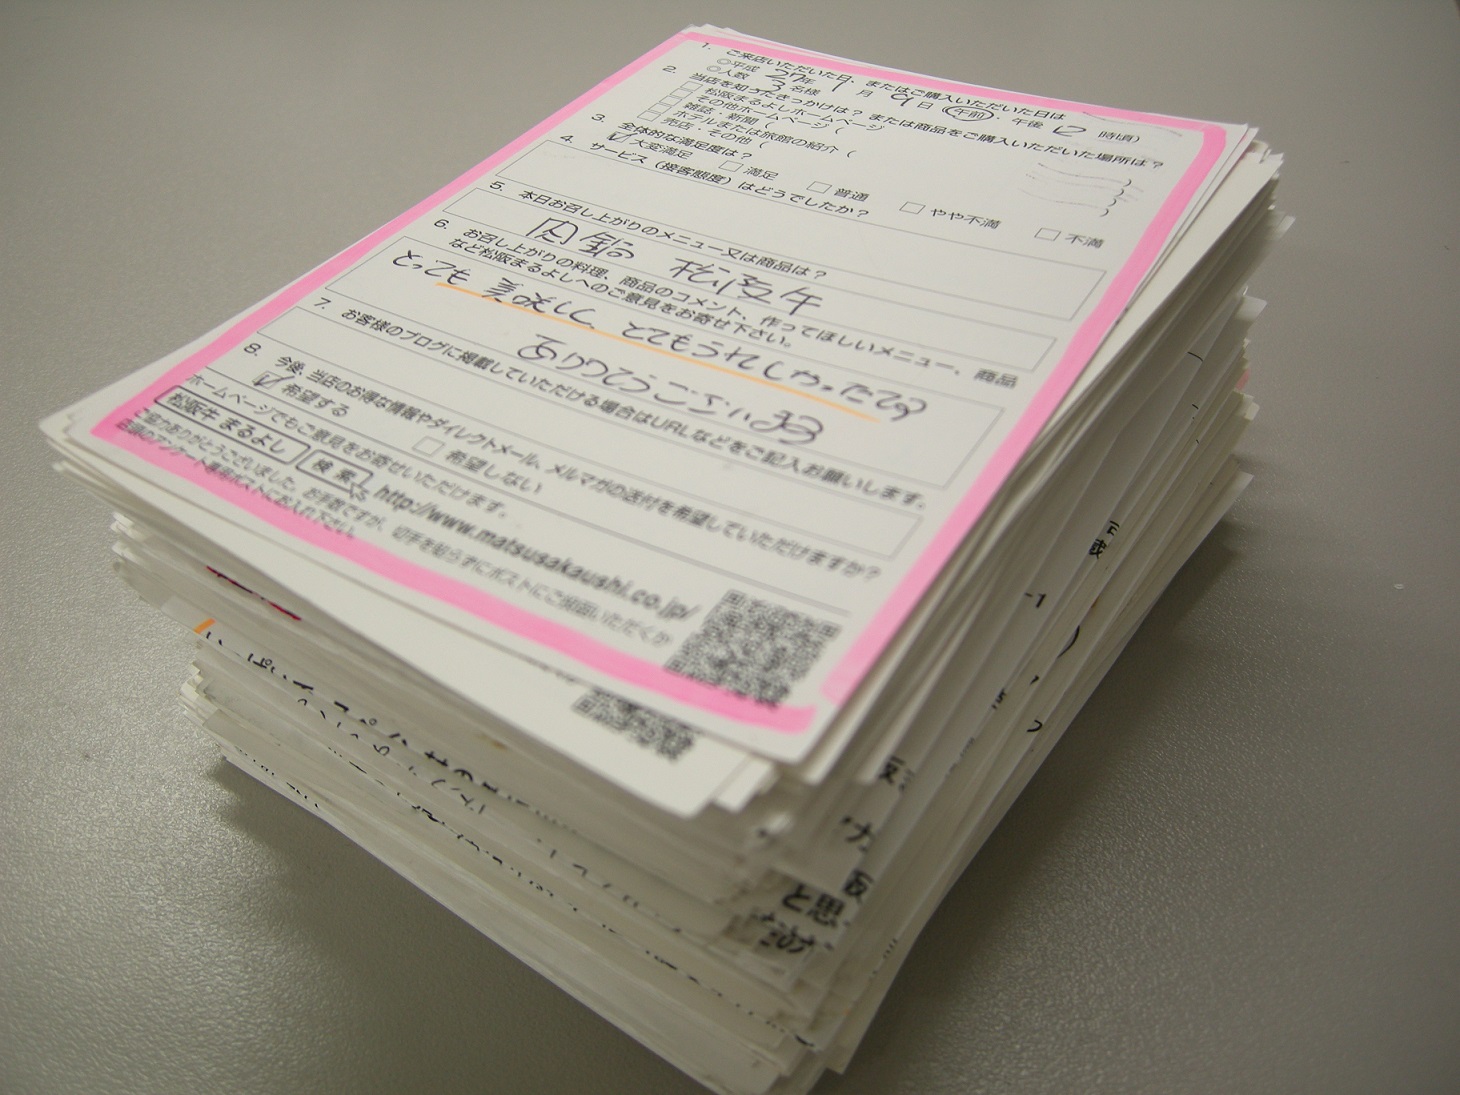 1. ご来店いただいた日、またはご購入いただいた日は
○平成 27年 1月 9日 (午前・午後 12 時頃)
○人数 3名様
2. 当店を知ったきっかけは？または商品をご購入いただいた場所は？
□ 松阪まるよしホームページ
□ その他ホームページ (
□ 雑誌・新聞 (
□ ホテルまたは旅館の紹介 (
□ 売店・その他 (
3. 全体的な満足度は？
☑ 大変満足 □ 満足 □ 普通 □ やや不満 □ 不満
4. サービス（接客態度）はどうでしたか？
5. 本日お召し上がりのメニュー又は商品は？
松阪牛
6. お召し上がりの料理、商品のコメント、作ってほしいメニュー、商品
など松阪まるよしへのご意見をお寄せ下さい。
とっても 美味しく、とてもうれしかったです
ありがとうございます
7. お客様のブログに掲載していただける場合はURLなどをご記入お願いします。
8. 今後、当店のお得な情報やダイレクトメール、メルマガの送付を希望していただけますか？
☑ 希望する □ 希望しない
ホームページでもご意見をお寄せいただけます。
松阪牛 まるよし 検索 http://www.matsusakaushi.co.jp/
ご協力ありがとうございました。お手数ですが、切手を貼らずにポストにご投函いただくか
と思